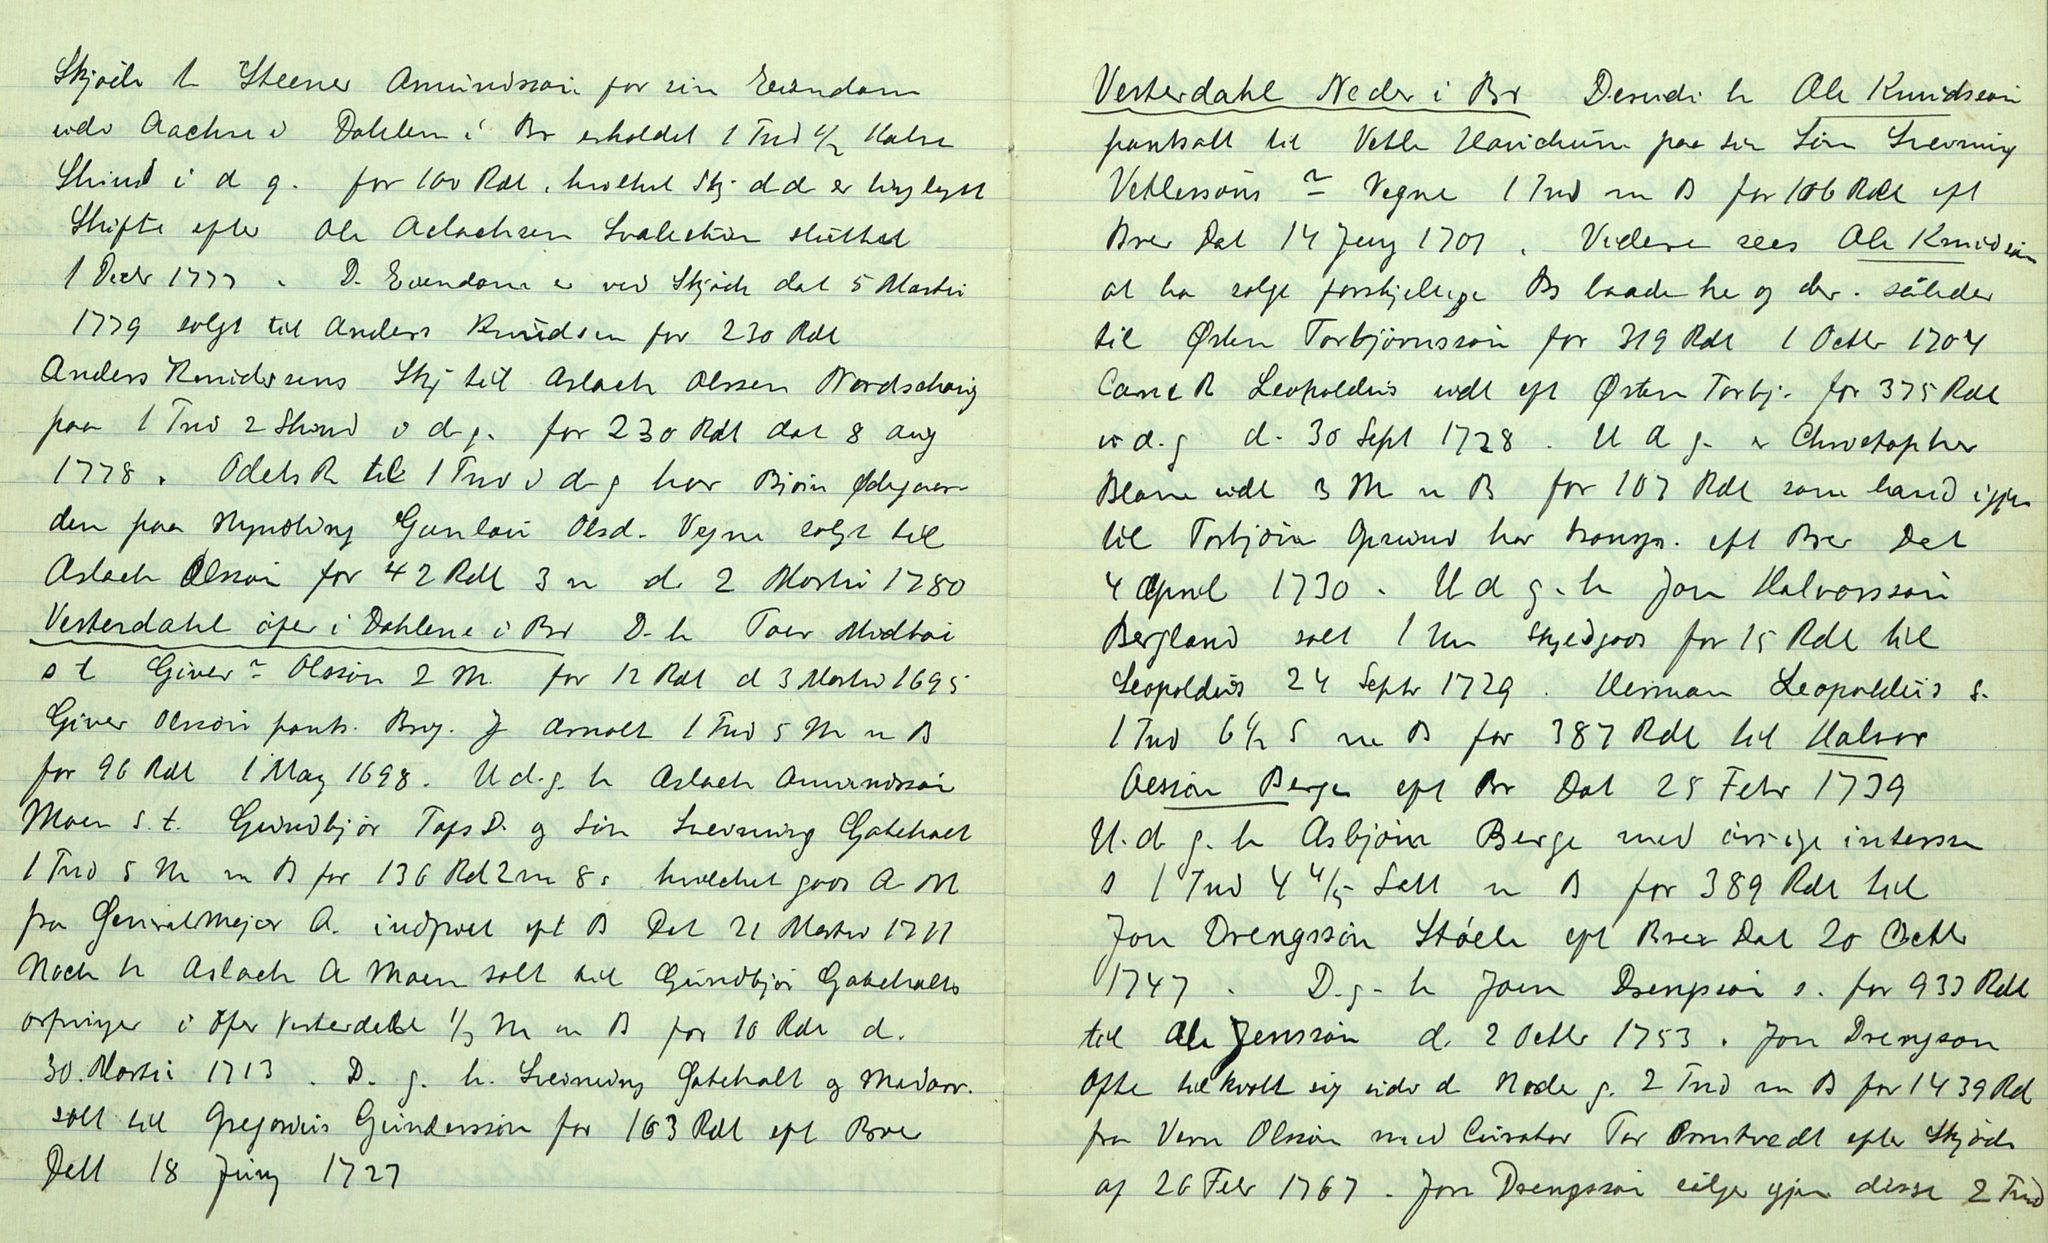 Skjøde h Steener Amundssøn for sin Eiendom
udi Aachre i Dahlen i Br erholdet 1 Tnd ½ Kalve
Skind i d g. for 100 Rdl. hvilket Skj d d er tinglyst
Skifte efter Ole Aslachsen sluttet
1 Decbr 1777. D. Eiendom er ved Skjøde dat 5 Martii
1779 solgt til Anders Knudsen for 230 Rdl
Anders Knudsens Skj til Aslach Olssen Nordschoug
paa 1 Tnd 2 Skind i d g. for 230 Rdl dat 8 aug
1778. Odels R til 1 Tnd i d g har Biørn Ødegaar
den paa Myndling Gunlau Olsd. Vegne solgt til
Aslach Olssøn for 42 Rdl 3 m d. 2 Martii 1780
Vesterdahl öfer i Dahlene i Br D. h Toer Midbøe
s t Giver Olssøn 2 M. for 12 Rdl d 3 Martii 1695
Giver Olssøn pants. Brg. J Arnolt 1 Tnd 5 M m B
for 96 Rdl 1 May 1698. U d. g. h Aslach Amundssøn
Moen s. t. Gundbjør Tofs D. og Søn Svenning Gateholt
1 Tnd 5 M m B for 136 Rd 2 m 8 s hvilchet goos A M
fra General Mejor A. indfriet eft B Dat 21 Martii 1711
Noch h Aslach A Moen solt til Gundbjør Gateholts
arfvinger i öfer Vesterdahl 1/3 M m B for 10 Rdl d.
30. Martii 1713. D. g. h. Svenning Gateholt og Medarv.
solt til Gregorius Gunderssøn for 163 Rdl eft Brev
Dat 18 Juny 1727
Vesterdahl Neder i Br Desudi h Ole Knudssøn
pantsatt til Vetle Havrdun paa sin Søn Svening
Vetlessøns Vegne 1 Tnd m B for 106 Rdl eft
Brev Dat 14 Juny 1701. Videre sees Ole Knudsøn
at ha solgt forskjellige Br baade he og der. således
til Østen Torbjørnssøn for 319 Rdl 1 Octbr 1704
Canc R Leopoldus udl eft Østen Torbj. for 375 Rdl
i d. g d. 30 Sept 1728. U d g. er Christopher
Blom udl 3 M m B for 107 Rdl som hand igjen
til Torbjøn har transp. eft Brev Dat
4 April 1730. U d g. h Jon Halvorssøn
Bergland solt 1 Skyldgods for 15 Rdl til
Leopoldus 24 Septr 1729. Herman Leopoldus s.
1 Tnd 6½ S m B for 387 Rdl til Halvor
Oessøn Berge eft Br Dat 25 Febr 1739
U. d. g. h Asbjøn Berge med övrige interssn
s 1 Tnd 4 4/5 Sett m B for 389 Rdl til
Jon Drengssøn Støele eft Brev Dat 20 Octbr
1747. D. g. h Joen Drengsøn s. for 933 Rdl
til Ole Jenssøn d. 2 Octbr 1753. Jon Drengson
Ofte tilkvalt sig udi d Nede g. 2 Tnd m B for 1439 Rd
fra Vern Olssøn med Curator Tor Ornstvedt efter Skjøde
af 26 Febr 1767. Jon Drengssøn sælger igjen disse 2 Tnd